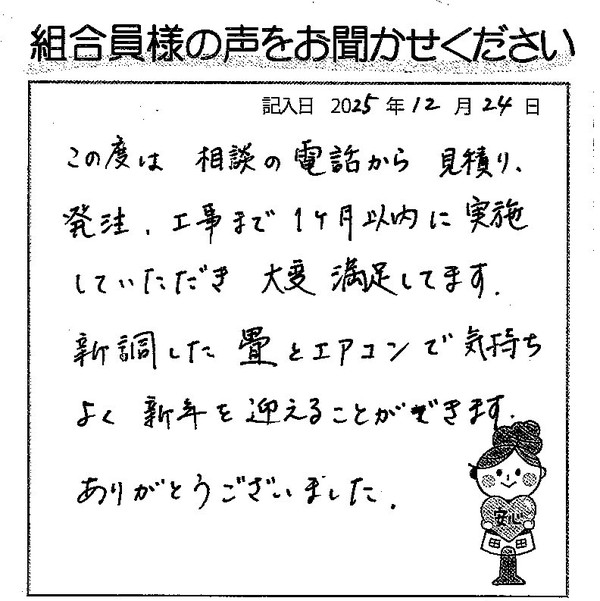 組合員様の声をお聞かせください
記入日 2025年12月24日
この度は 相談の電話から 見積り、
発注、工事まで 1ヶ月以内に 実施
していただき 大変 満足してます。
新調した 畳とエアコンで 気持ち
よく 新年を 迎えることができます。
ありがとうございました。
安心